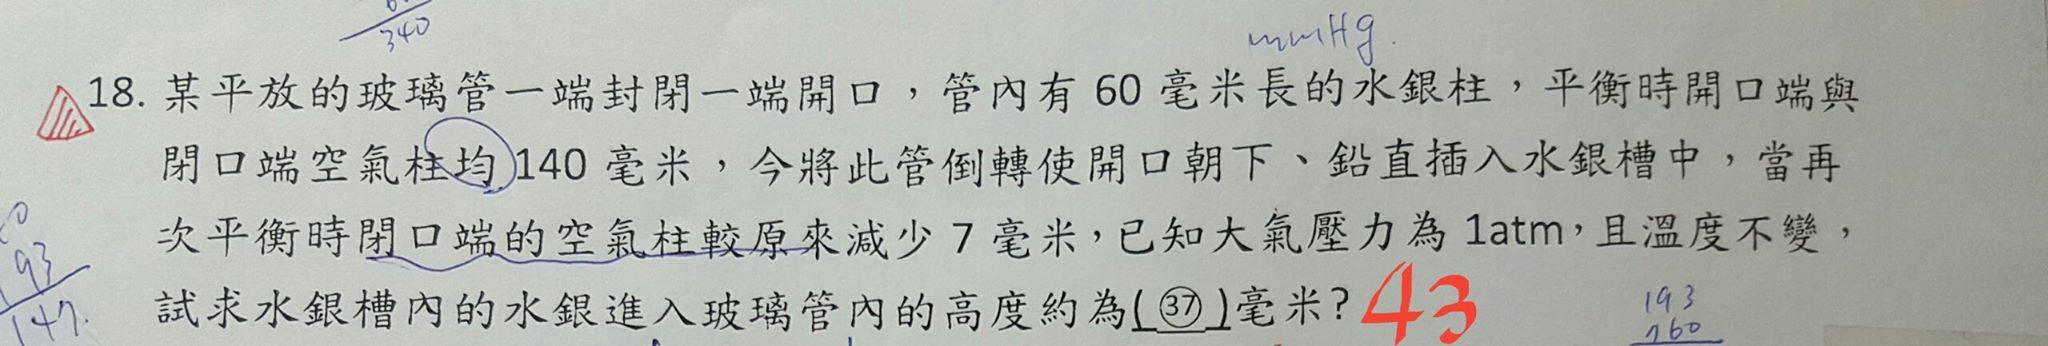 340
mmHg.
18. 某平放的玻璃管一端封閉一端開口，管內有 60 毫米長的水銀柱，平衡時開口端與
閉口端空氣柱均 140 毫米，今將此管倒轉使開口朝下、鉛直插入水銀槽中，當再
次平衡時閉口端的空氣柱較原來減少 7 毫米，已知大氣壓力為 1atm，且溫度不變，
試求水銀槽內的水銀進入玻璃管內的高度約為( ㊲ )毫米？43
193
147.
193
760